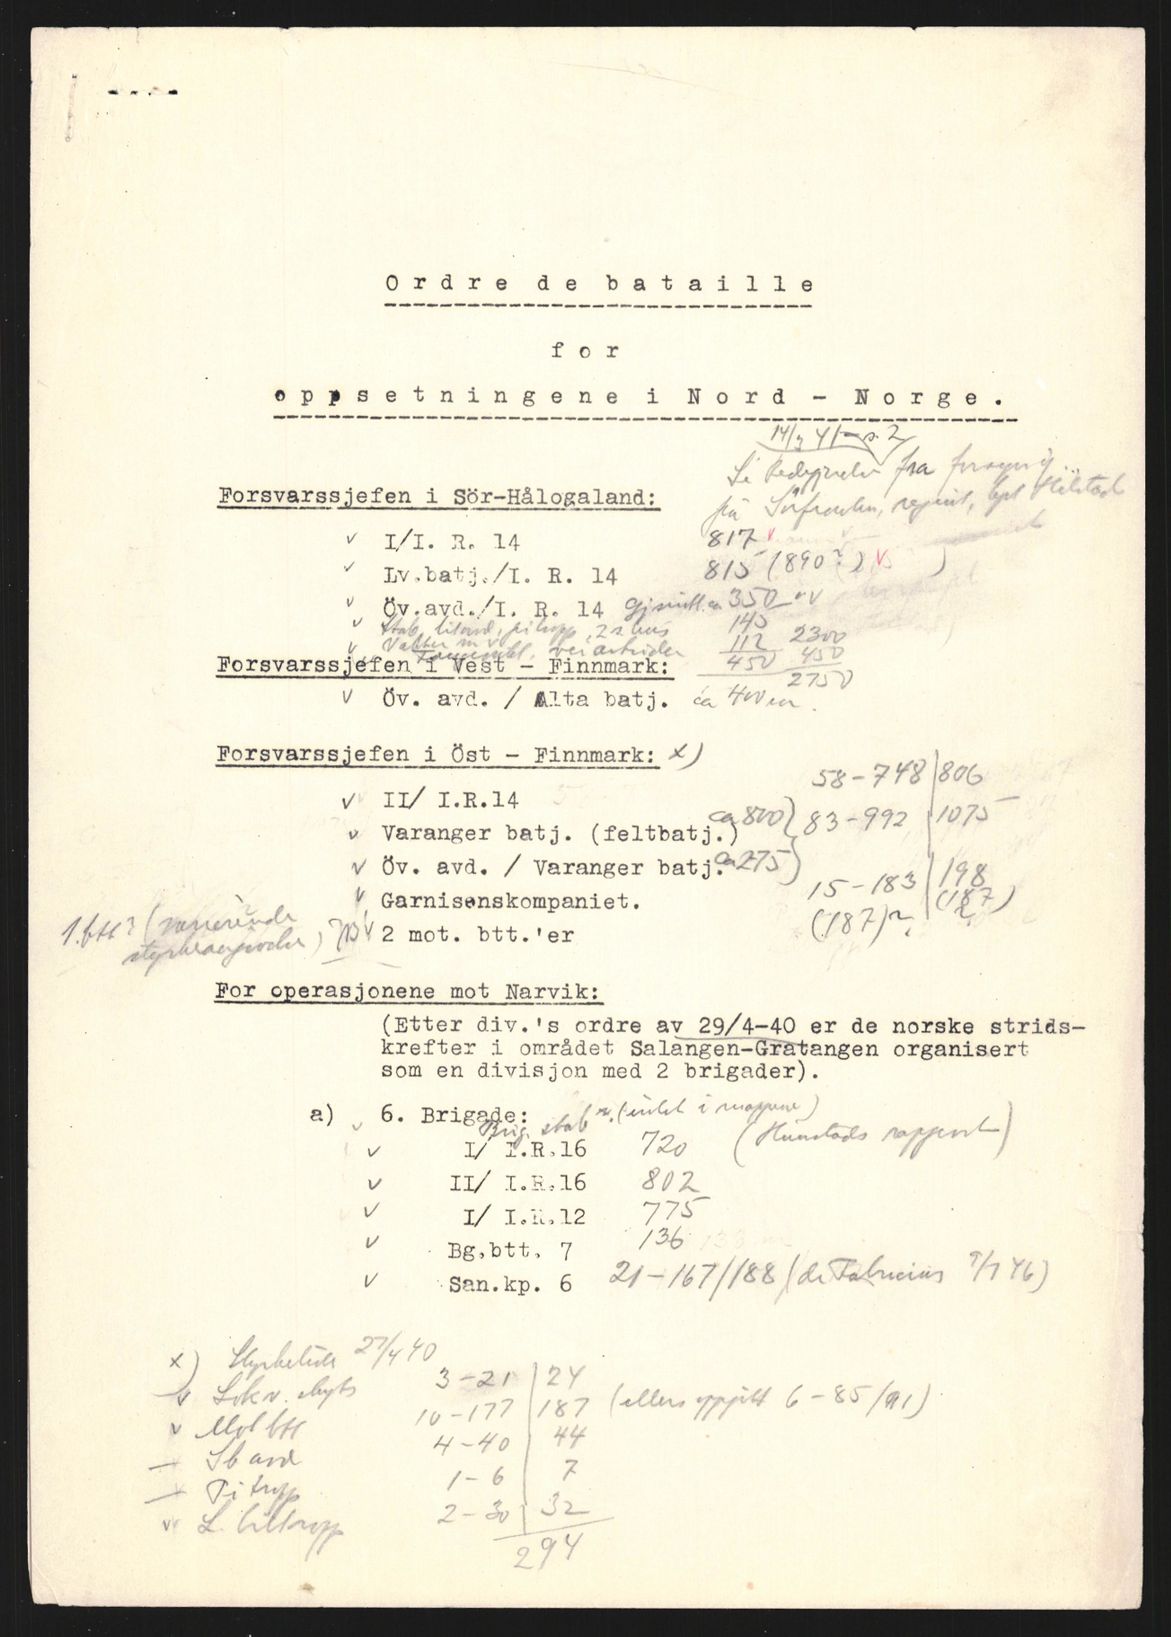 Ordre de bataille
for
oppsetningene i Nord - Norge.
14/3 41 - s. 2
Forsvarssjefen i Sör-Hålogaland:
v I/I. R. 14 817 v
v Lv.batj./I. R. 14 815 (890?) v
v Öv.avd./I. R. 14 350 v
v 145
v 112 2300
450 450
2750
Forsvarssjefen i Vest - Finnmark:
v Öv. avd. / Alta batj. ca 400
Forsvarssjefen i Öst - Finnmark: x)
58-748 | 806
v II/ I.R.14
v Varanger batj. (feltbatj.) ca 800 } 83-992 | 1075
v Öv. avd. / Varanger batj. ca 275 )
15-183 | 198
v Garnisonskompaniet. (187)?. (187)
v 2 mot. btt.'er
For operasjonene mot Narvik:
(Etter div.'s ordre av 29/4-40 er de norske strids-
krefter i området Salangen-Gratangen organisert
som en divisjon med 2 brigader).
a) 6. Brigade:
v Brig. stab (intet i mappene)
v I/ I.R.16 720 (Hunstads rapport)
v II/ I.R.16 802
v I/ I.R.12 775
v Bg.btt. 7 136
v San.kp. 6 21-167/188 (de Fabricius 9/1 46)
x) 27/4 40
3-21 | 24
v Mot btt 10-177 | 187 (ellers oppgitt 6-85/91)
4-40 44
Pi tropp 1-6 7
v 2-30 32
294